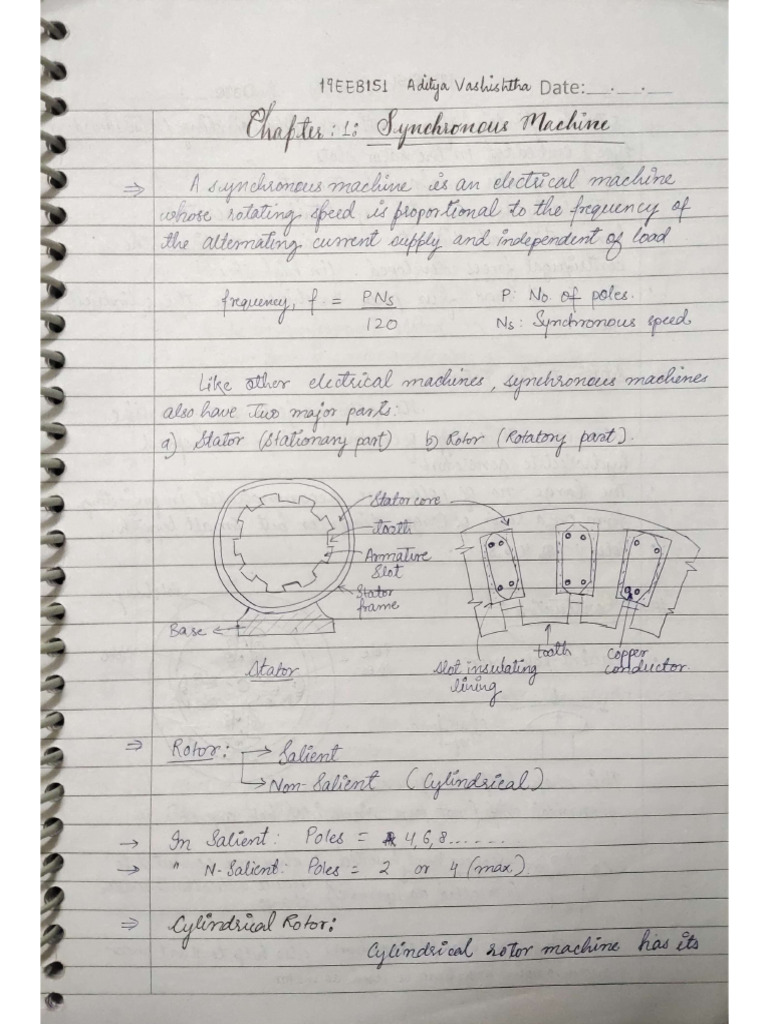 19EEB151 Aditya Vashishtha Date:__.__.__
Chapter: 1: Synchronous Machine
⇒ A synchronous machine is an electrical machine
whose rotating speed is proportional to the frequency of
the alternating current supply and independent of load
frequency, f = PNs P: No. of poles.
120 Ns: Synchronous speed
Like other electrical machines, synchronous machines
also have two major parts:
a) Stator (Stationary part) b) Rotor (Rotatory part).
Stator core
tooth
Armature
Slot
Stator
frame
Base
Stator
tooth
copper
conductor.
slot insulating
lining
⇒ Rotor: → Salient
→ Non-Salient (Cylindrical)
→ In Salient: Poles = 4, 6, 8......
→ " N-Salient: Poles = 2 or 4 (max)
⇒ Cylindrical Rotor:
Cylindrical rotor machine has its